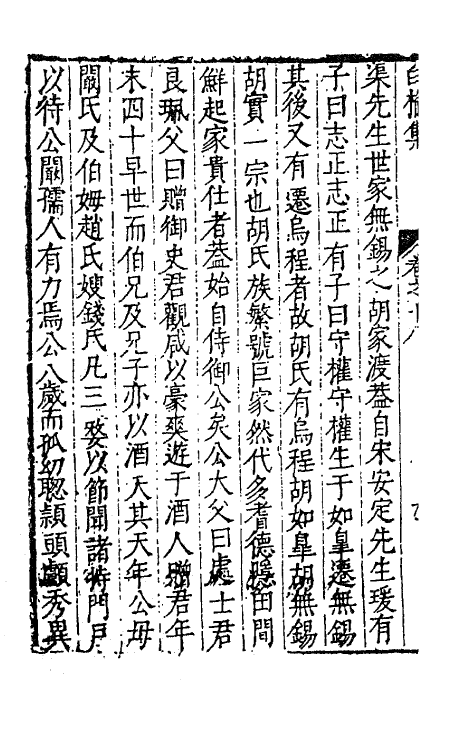 白榆集 卷之十八
渠先生世家無錫之胡家渡葢自宋安定先生瑗有
子曰志正志正有子曰守權守權生于如皐遷無錫
其後又有遷烏程者故胡氏有烏程胡如皐胡無錫
胡實一宗也胡氏族繁號巨家然代多耆德隱田間
鮮起家貴仕者葢始自侍御公矣公大父曰處士君
良珮父曰贈御史君觀咸以豪爽遊于酒人贈君年
未四十早世而伯兄及兄子亦以酒夭其天年公母
闞氏及伯姆趙氏嫂錢氏凡三嫠以節聞諸將門戶
以待公闞孺人有力焉公八歲而孤幼聰頴頭顱秀異